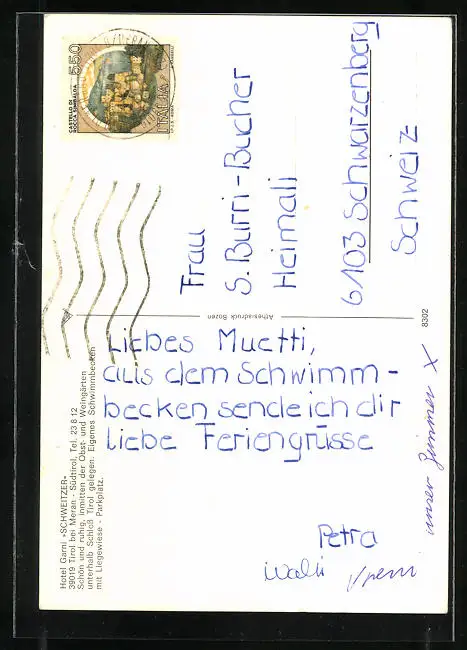 550
CASTELLO DI
ROCCA SINIBALDA
ITALIA
Frau
S. Burri-Bucher
Heimali
6103 Schwarzenberg
Schweiz
Athesiadruck Bozen
8302
Liebes Muetti,
aus dem Schwimm-
becken sende ich dir
liebe Feriengrüsse
Petra
Walti
unser Zimmer X
Hotel Garni »SCHWEITZER«
39019 Tirol bei Meran - Südtirol, Tel. 23 8 12
Schön und ruhig, inmitten der Obst- und Weingärten
unterhalb Schloß Tirol gelegen. Eigenes Schwimmbecken
mit Liegewiese - Parkplatz.